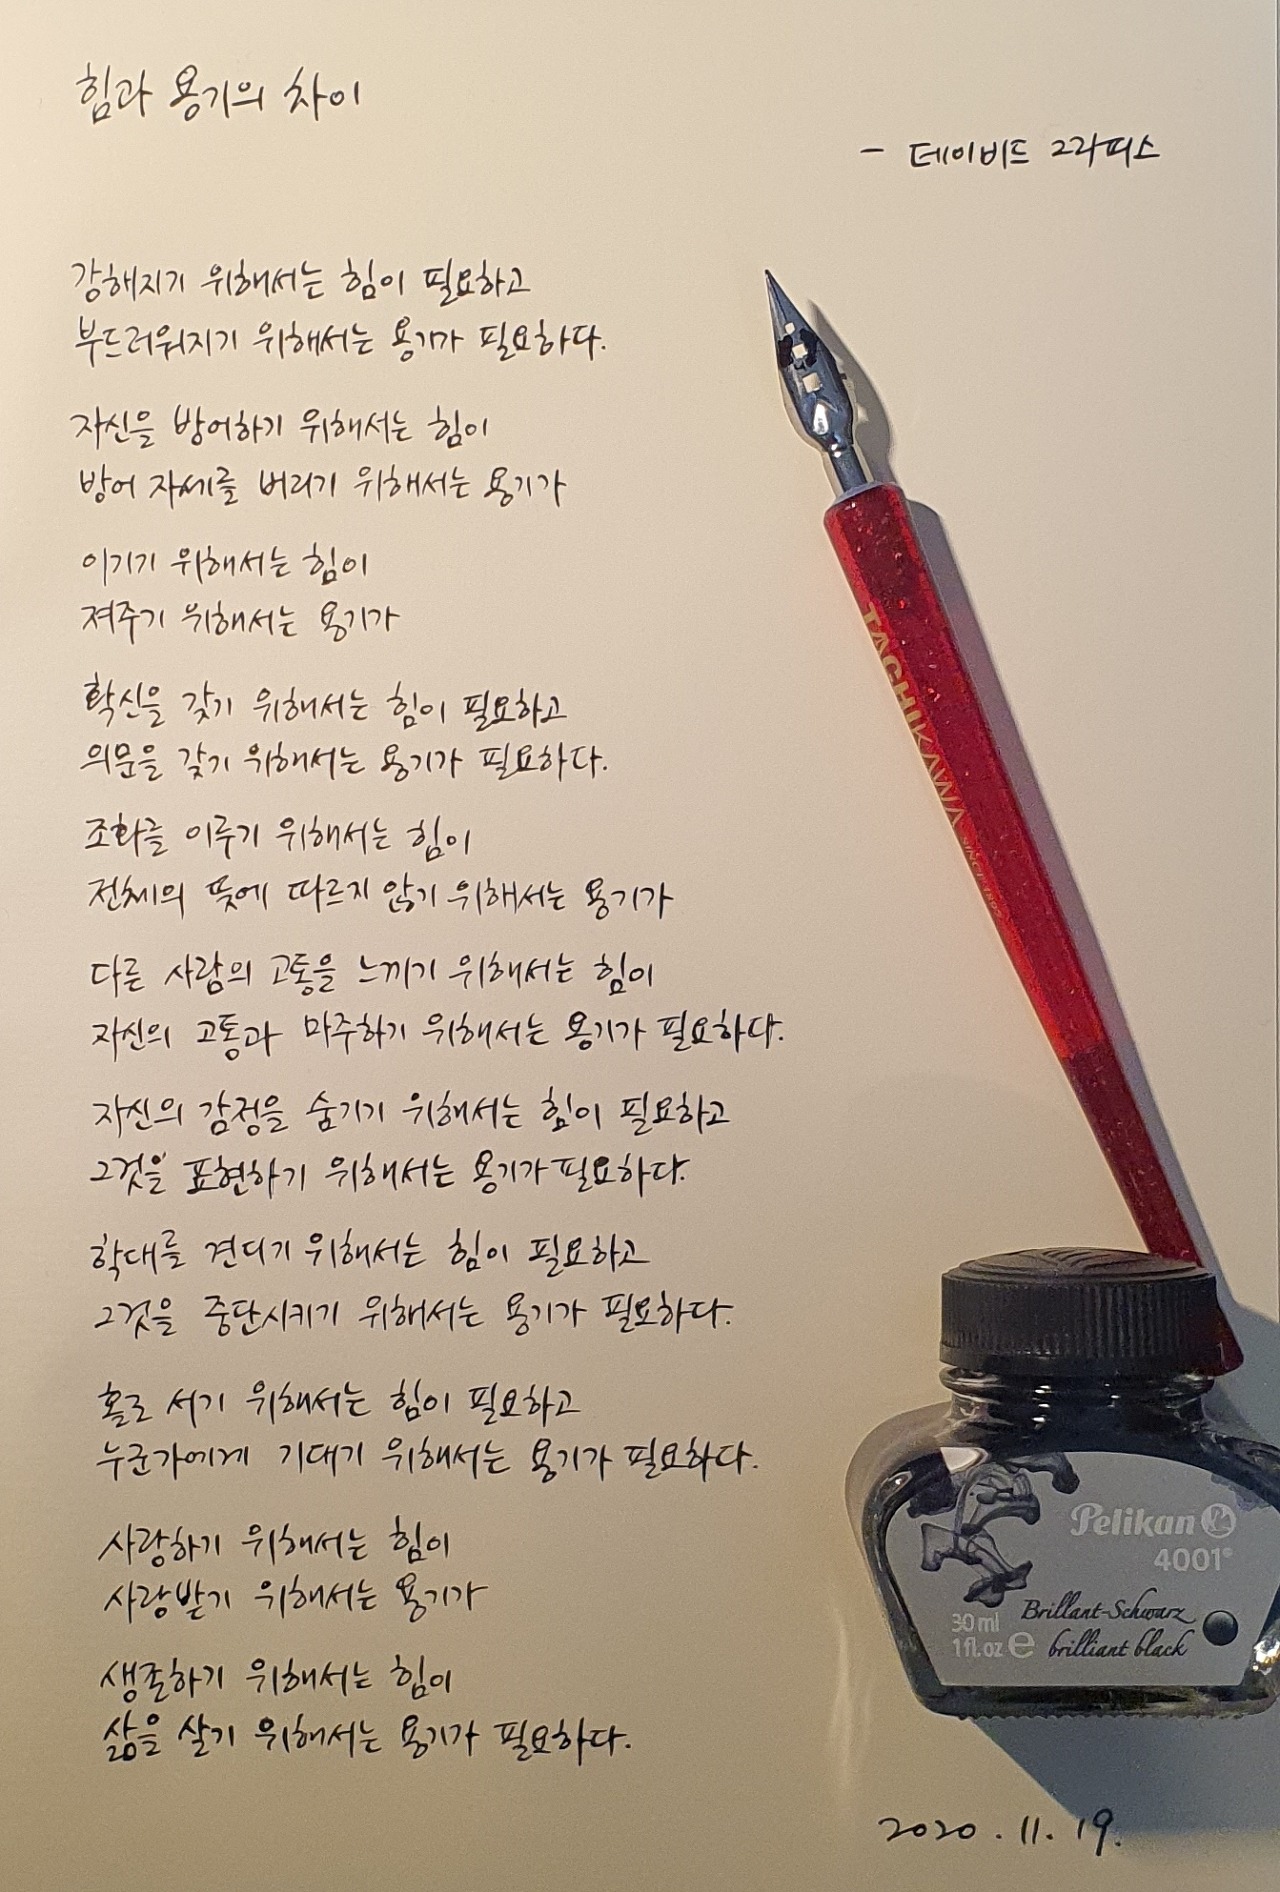 힘과 용기의 차이
- 데이비드 그리피스
강해지기 위해서는 힘이 필요하고
부드러워지기 위해서는 용기가 필요하다.
자신을 방어하기 위해서는 힘이
방어 자세를 버리기 위해서는 용기가
이기기 위해서는 힘이
져주기 위해서는 용기가
확신을 갖기 위해서는 힘이 필요하고
의문을 갖기 위해서는 용기가 필요하다.
조화를 이루기 위해서는 힘이
전체의 뜻에 따르지 않기 위해서는 용기가
다른 사람의 고통을 느끼기 위해서는 힘이
자신의 고통과 마주하기 위해서는 용기가 필요하다.
자신의 감정을 숨기기 위해서는 힘이 필요하고
그것을 표현하기 위해서는 용기가 필요하다.
학대를 견디기 위해서는 힘이 필요하고
그것을 중단시키기 위해서는 용기가 필요하다.
홀로 서기 위해서는 힘이 필요하고
누군가에게 기대기 위해서는 용기가 필요하다.
사랑하기 위해서는 힘이
사랑받기 위해서는 용기가
생존하기 위해서는 힘이
삶을 살기 위해서는 용기가 필요하다.
2020. 11. 19.
TACHIKAWA SINCE
Pelikan
4001®
30 ml
1fl.oz e
Brillant-Schwarz
brilliant black